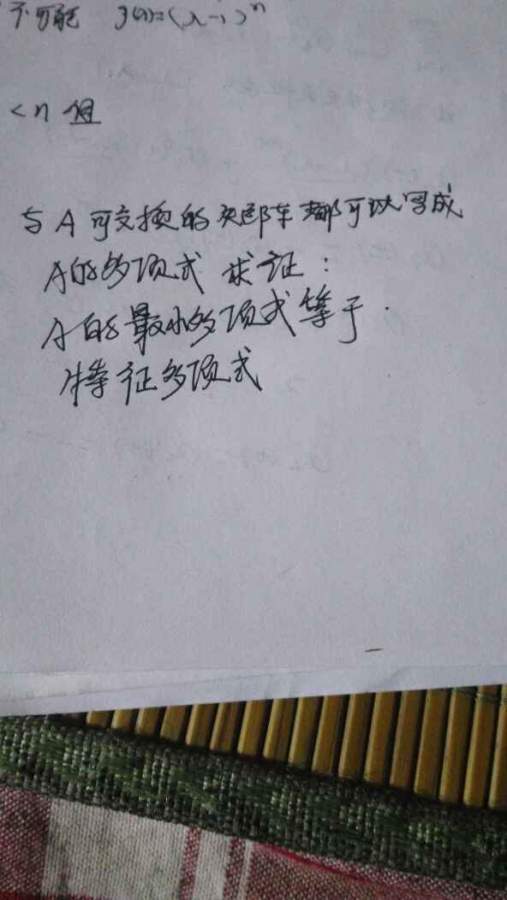 不可能 g(λ)=(λ-1)ⁿ
<n 但
与 A 可交换的矩阵都可以写成
A的多项式 求证:
A的最小多项式等于
特征多项式